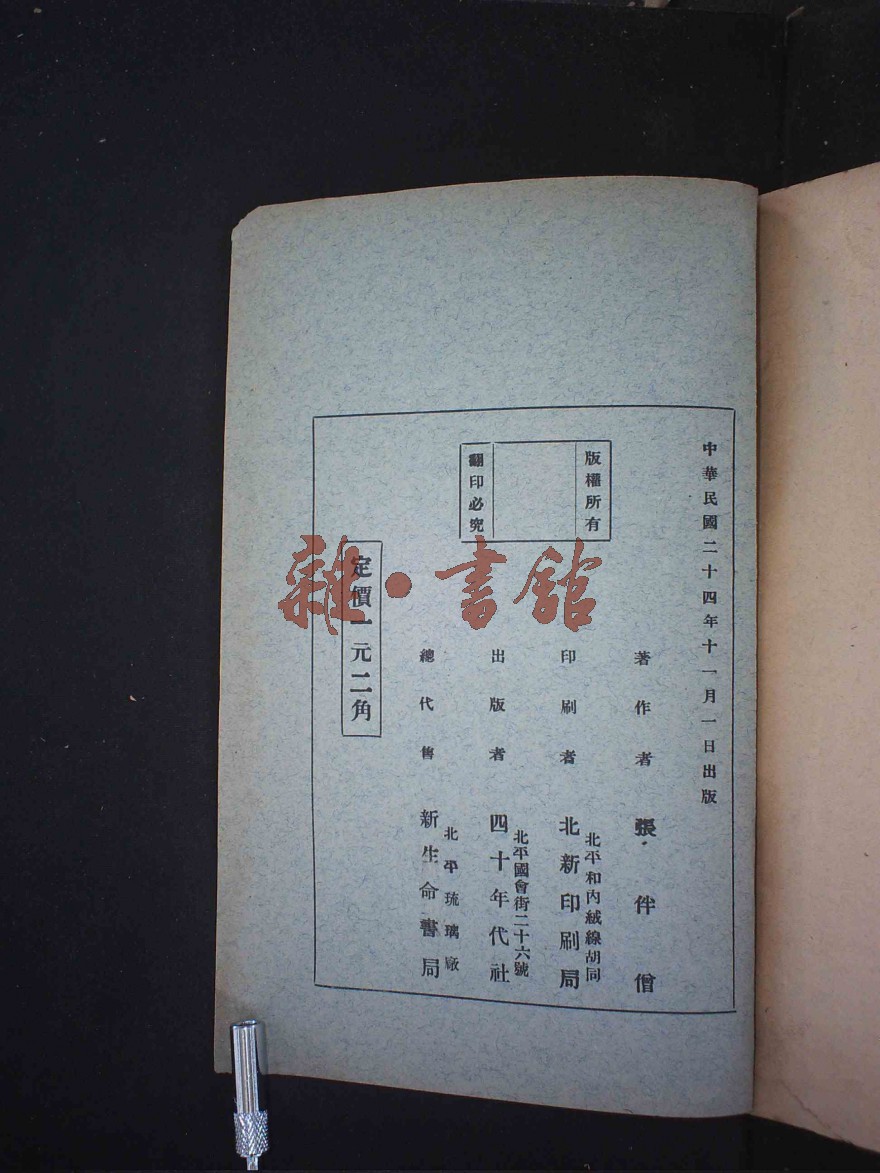 中華民國二十四年十一月一日出版
版權所有
翻印必究
著作者 張伴僧
北平和內絨線胡同
印刷者 北新印刷局
北平國會街二十六號
出版者 四十年代社
北平琉璃廠
總代售 新生命書局
定價一元二角
雜·書館